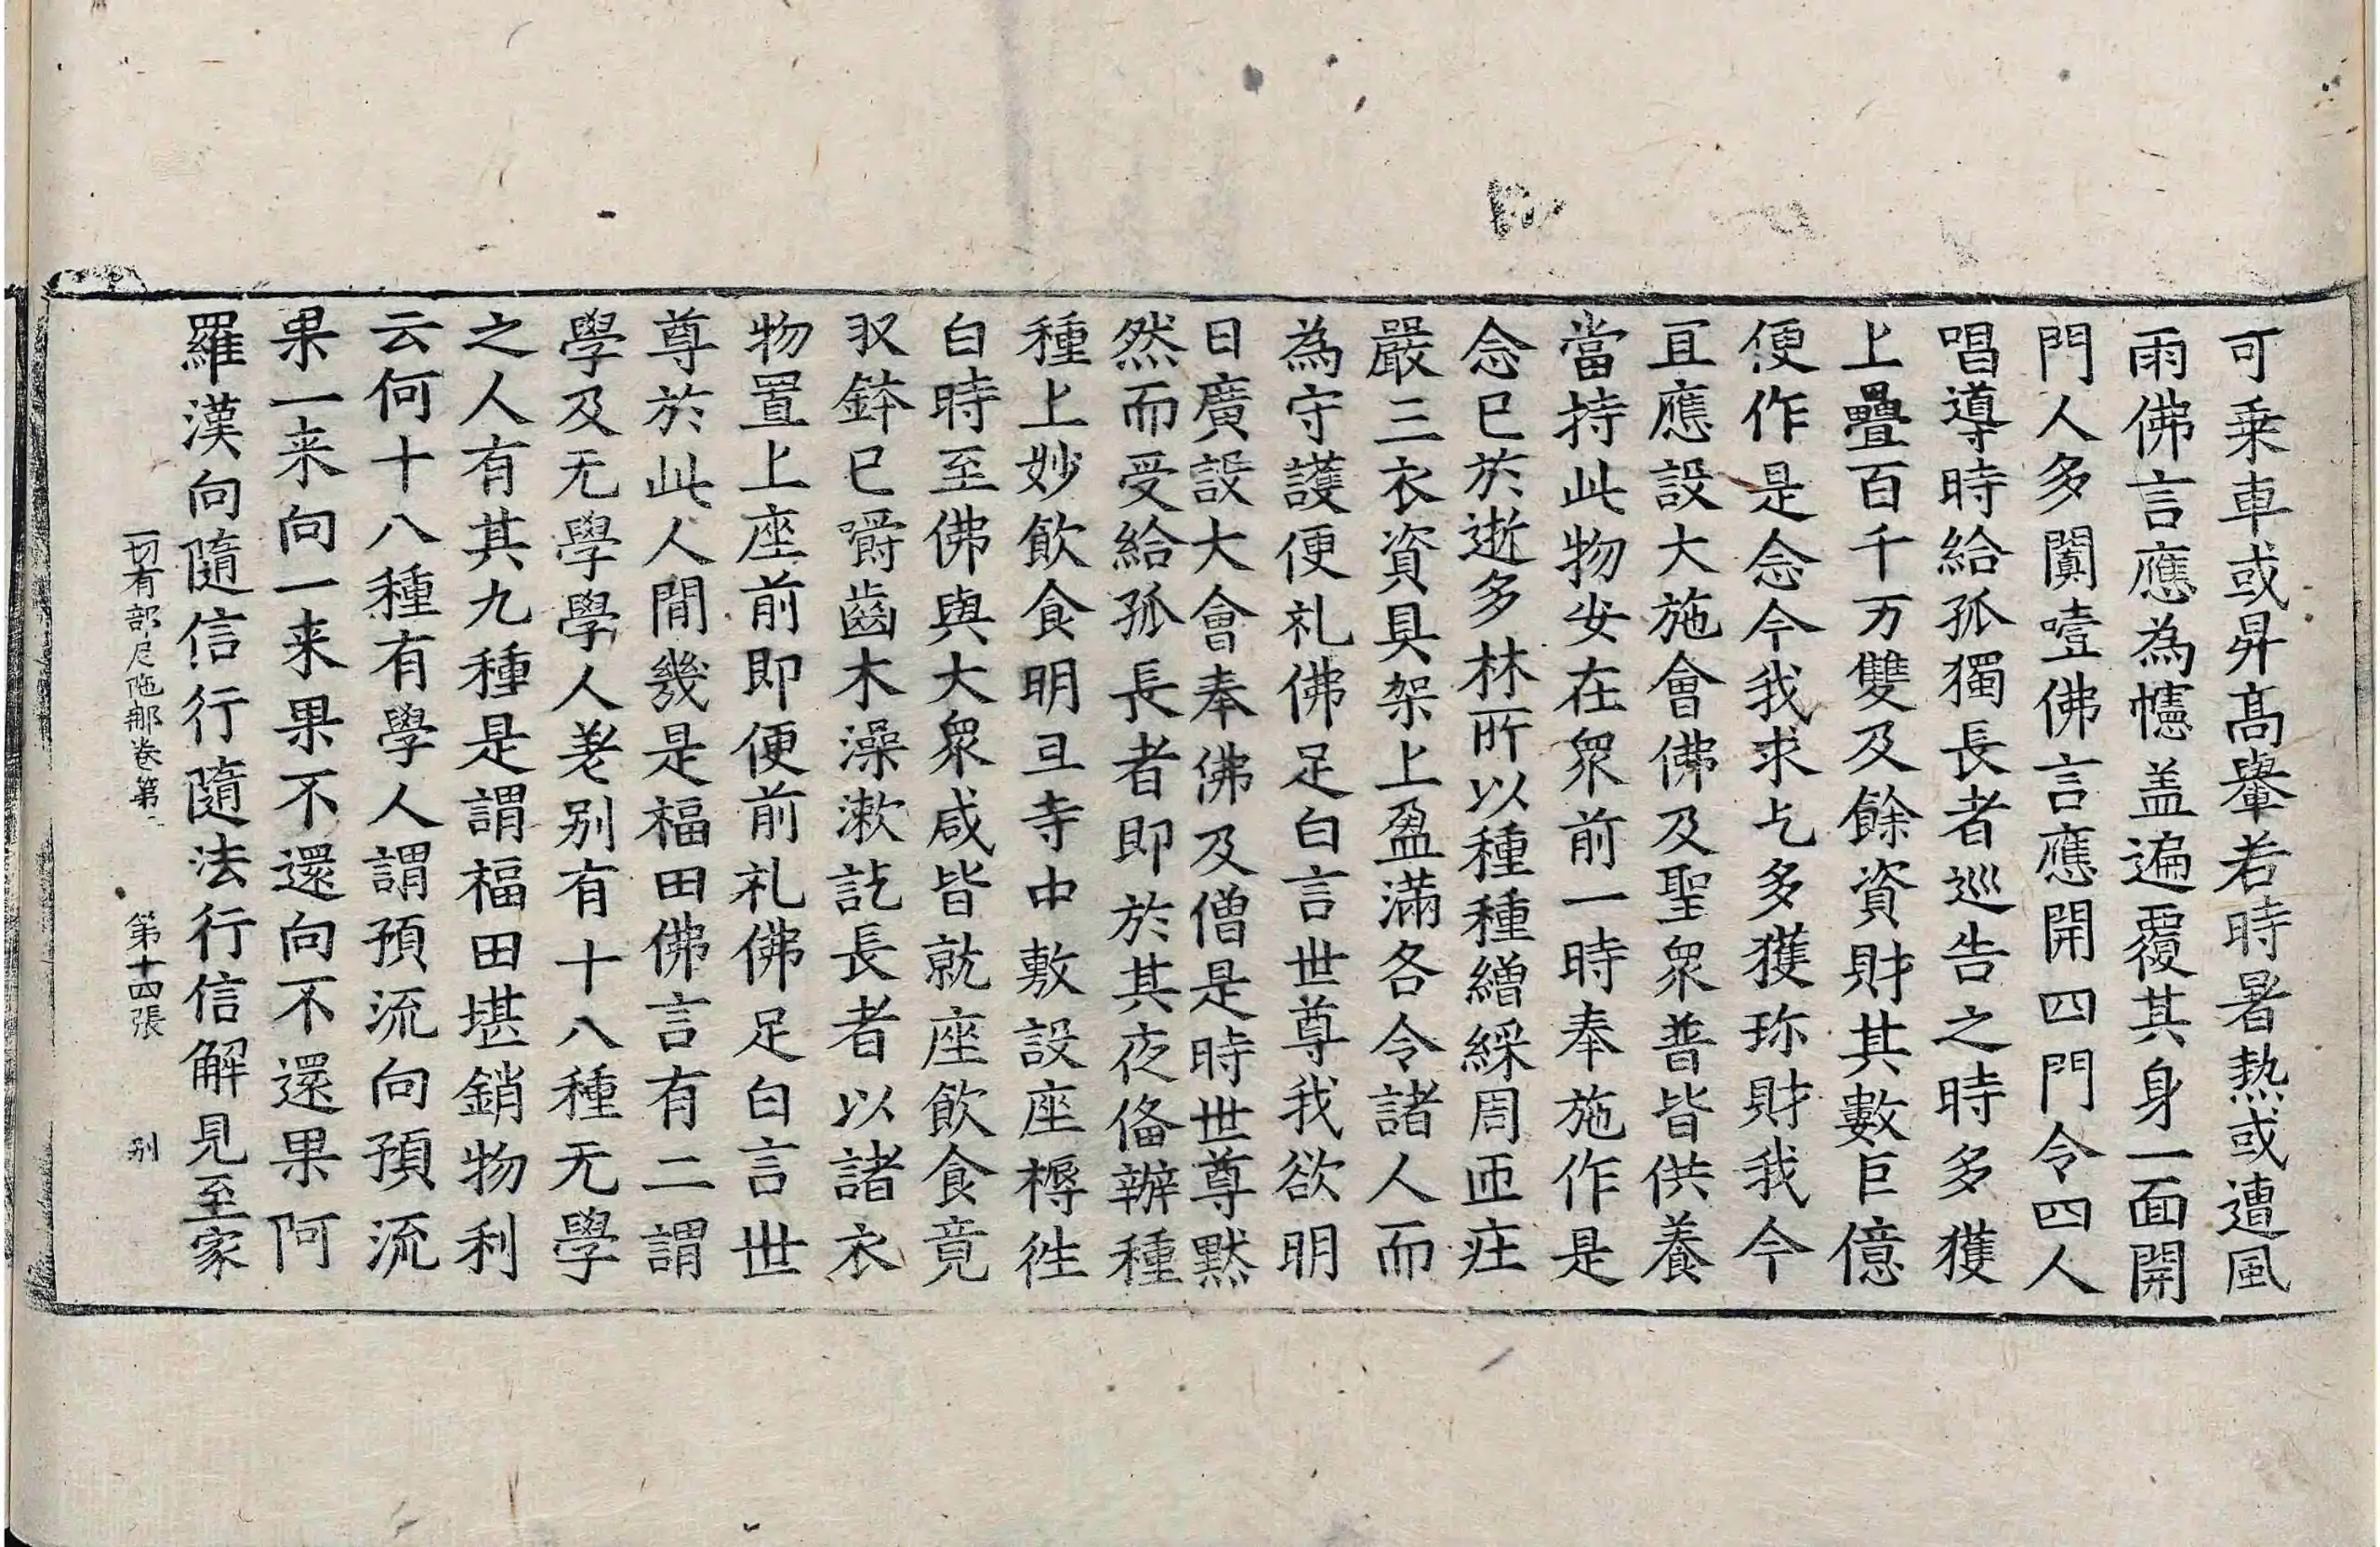 可乗車或昇髙轝若時暑熱或遭風
雨佛言應為幰盖遍覆其身一面開
門人多闐噎佛言應開四門令四人
唱導時給孤獨長者巡告之時多獲
上疊百千万雙及餘資財其數巨億
便作是念今我求乞多獲珎財我今
冝應設大施會佛及聖衆普皆供養
當持此物安在衆前一時奉施作是
念已於逝多林所以種種繒綵周帀庄
嚴三衣資具架上盈滿各令諸人而
為守護便礼佛足白言世尊我欲明
日廣設大會奉佛及僧是時世尊黙
然而受給孤長者即於其夜俻辦種
種上妙飲食明旦寺中敷設座褥徃
白時至佛與大衆咸皆就座飲食竟
収鉢已嚼齒木澡漱訖長者以諸衣
物置上座前即便前礼佛足白言世
尊於此人間幾是福田佛言有二謂
學及无學學人差别有十八種无學
之人有其九種是謂福田堪銷物利
云何十八種有學人謂預流向預流
果一来向一来果不還向不還果阿
羅漢向隨信行隨法行信解見至家
一切有部尼陁那卷第一 第十四張 别